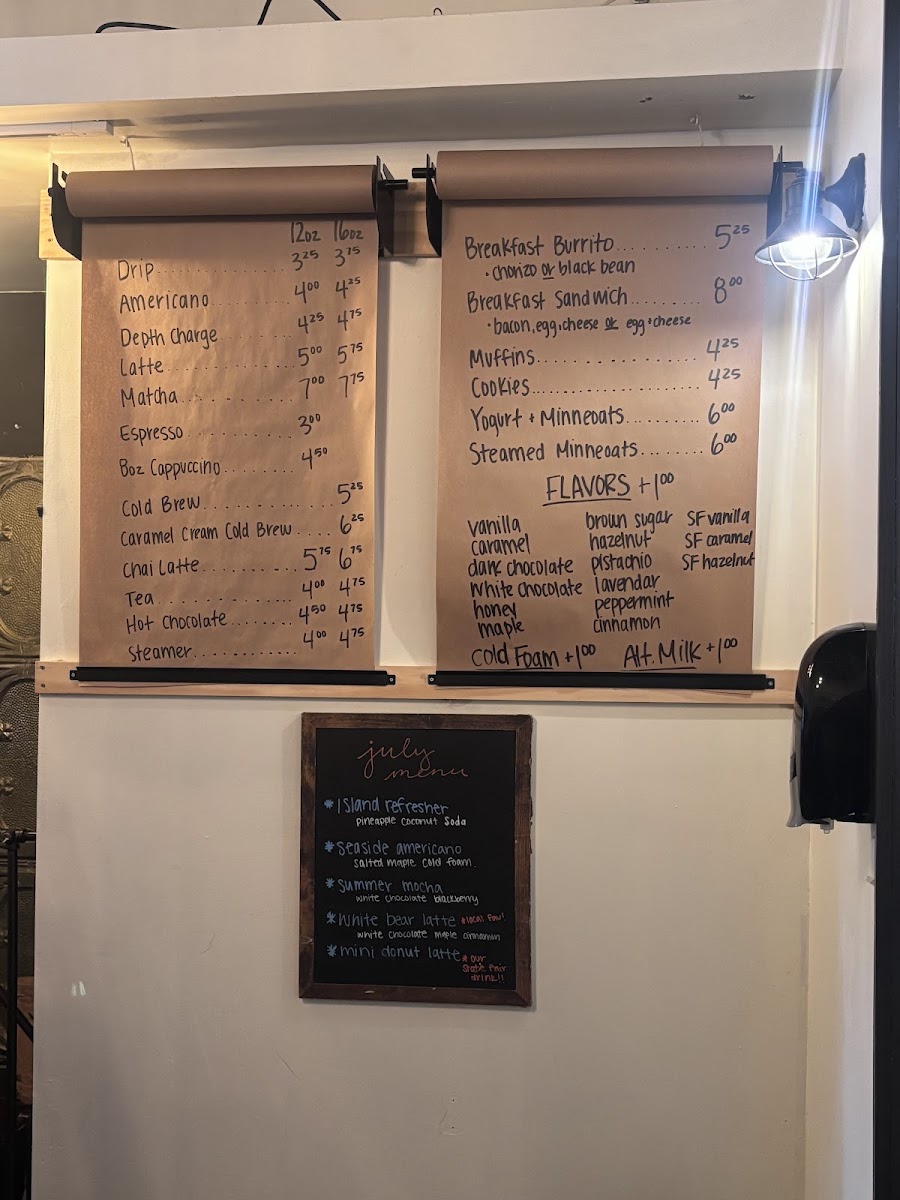 12oz 16oz
Drip.............. 3²⁵ 3⁷⁵
Americano.......... 4⁰⁰ 4²⁵
Depth Charge....... 4²⁵ 4⁷⁵
Latte.............. 5⁰⁰ 5⁷⁵
Matcha............. 7⁰⁰ 7⁷⁵
Espresso........... 3⁰⁰
8oz Cappuccino........ 4⁵⁰
Cold Brew............. 5²⁵
Caramel Cream Cold Brew.... 6²⁵
Chai Latte.......... 5⁷⁵ 6⁷⁵
Tea................ 4⁰⁰ 4⁷⁵
Hot Chocolate........ 4⁵⁰ 4⁷⁵
Steamer............ 4⁰⁰ 4⁷⁵
Breakfast Burrito.......... 5²⁵
• chorizo or black bean
Breakfast Sandwich........ 8⁰⁰
• bacon, egg, cheese or egg + cheese
Muffins.................. 4²⁵
Cookies.................. 4²⁵
Yogurt + Minneoats.......... 6⁰⁰
Steamed Minneoats........ 6⁰⁰
FLAVORS +1⁰⁰
vanilla brown sugar SF vanilla
caramel hazelnut SF caramel
dark chocolate pistachio SF hazelnut
white chocolate lavendar
honey peppermint
maple cinnamon
Cold Foam +1⁰⁰ Alt. Milk +1⁰⁰
july
menu
* Island refresher
pineapple coconut soda
* seaside americano
salted maple cold foam
* summer mocha
white chocolate blackberry
* white bear latte * local fav!
white chocolate maple cinnamon
* mini donut latte * our
State Fair
drink!!